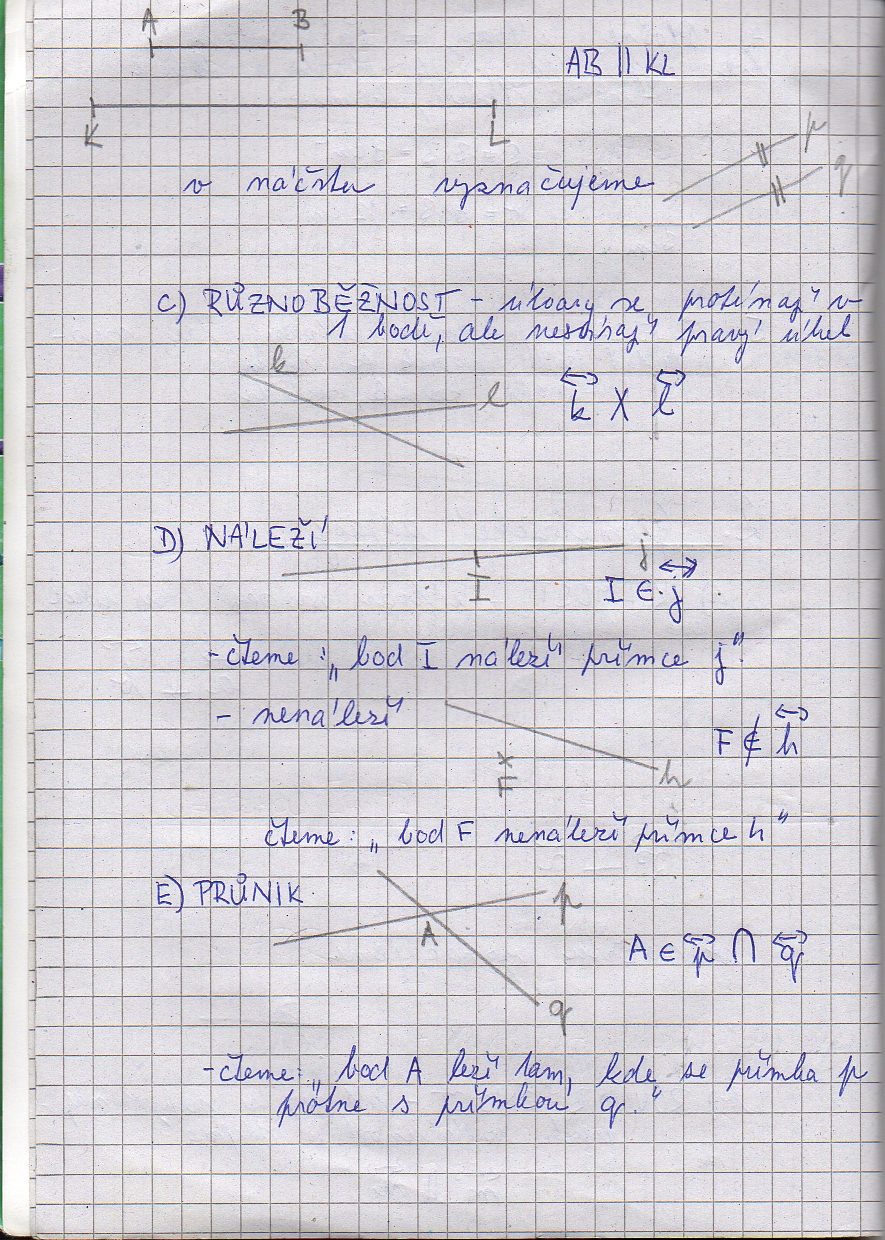 A B
AB || KL
K L
p
q
v náčrtu vyznačujeme
C) RŮZNOBĚŽNOST - útvary se protínají v
1 bodě, ale nesvírají pravý úhel
k
l
k X l
D) NÁLEŽÍ
j
I
I ∈ j
- čteme: „bod I náleží přímce j“.
- nenáleží
F ∉ h
F
h
čteme: „bod F nenáleží přímce h“
E) PRŮNIK
p
A
A ∈ p ∩ q
q
- čteme: „bod A leží tam, kde se přímka p
protne s přímkou q.“